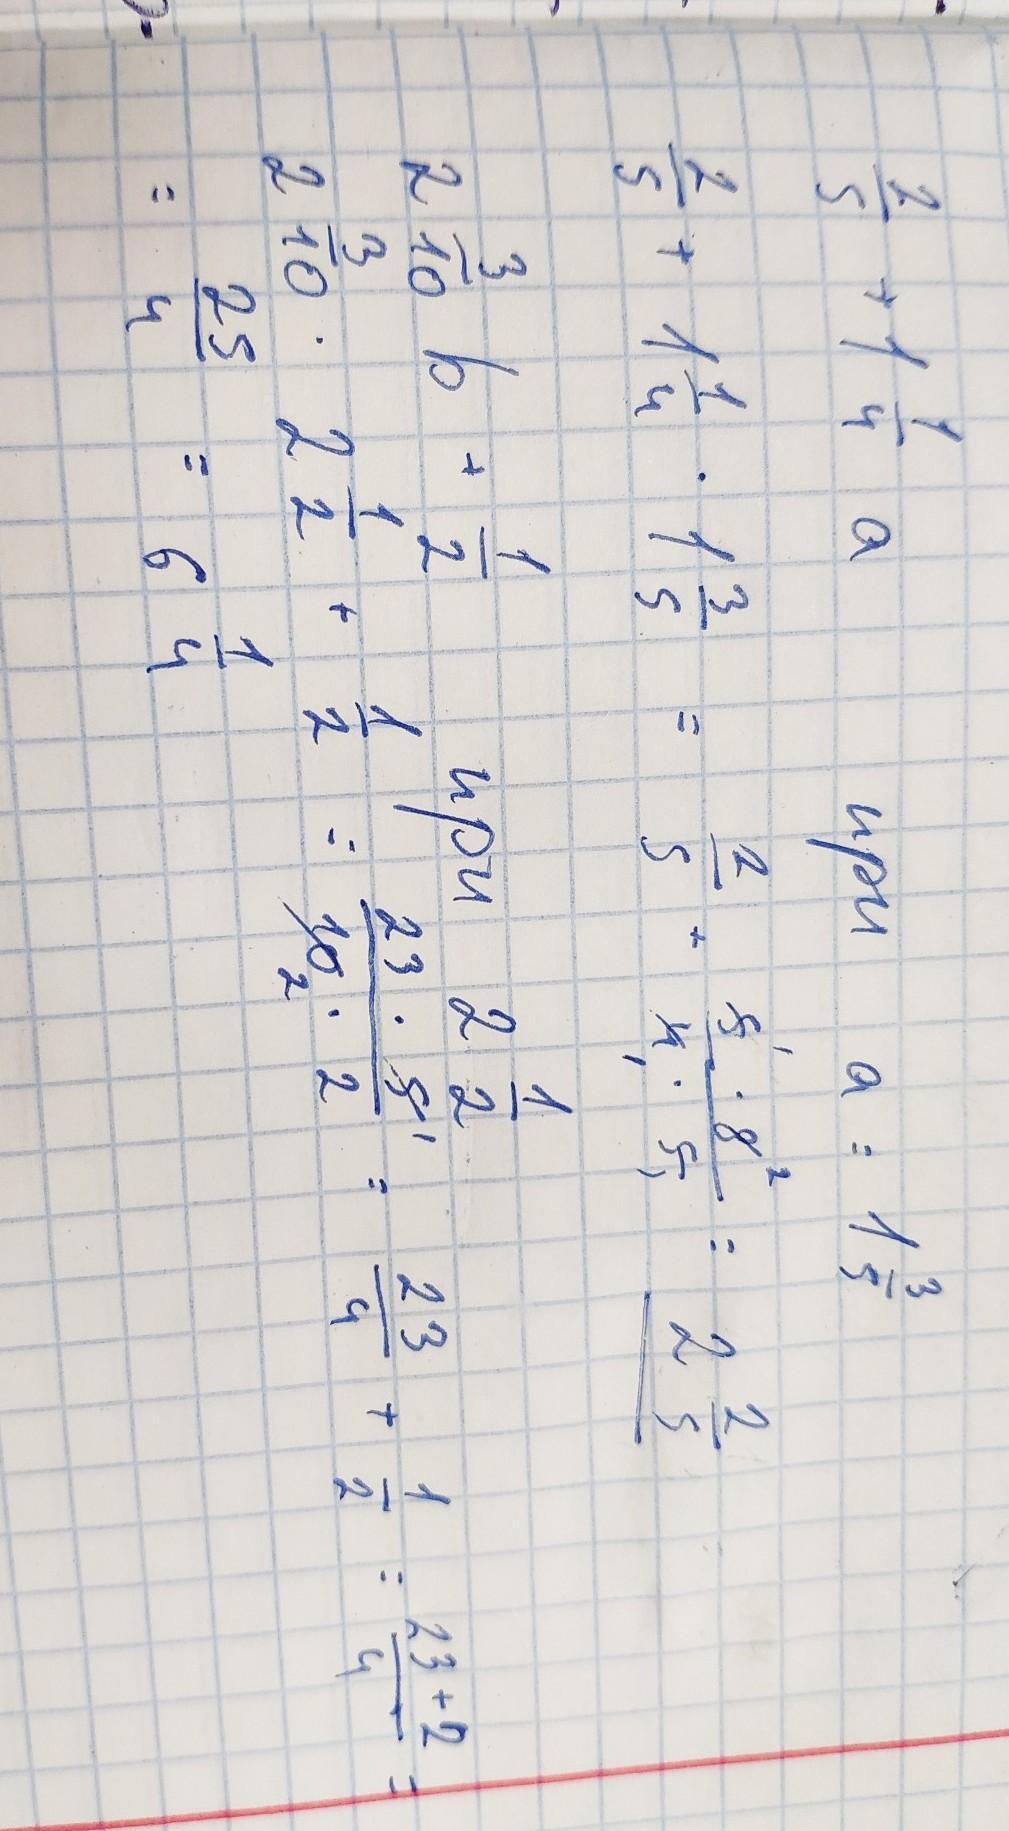 2/5 + 1 1/4 a при a = 1 3/5
2/5 + 1 1/4 · 1 3/5 = 2/5 + 5¹ · 8² / 4₁ · 5₁ = 2 2/5
2 3/10 b + 1/2 при 2 1/2
2 3/10 · 2 1/2 + 1/2 = 23 · 5¹ / 10₂ · 2 = 23/4 + 1/2 = 23+2/4 =
= 25/4 = 6 1/4